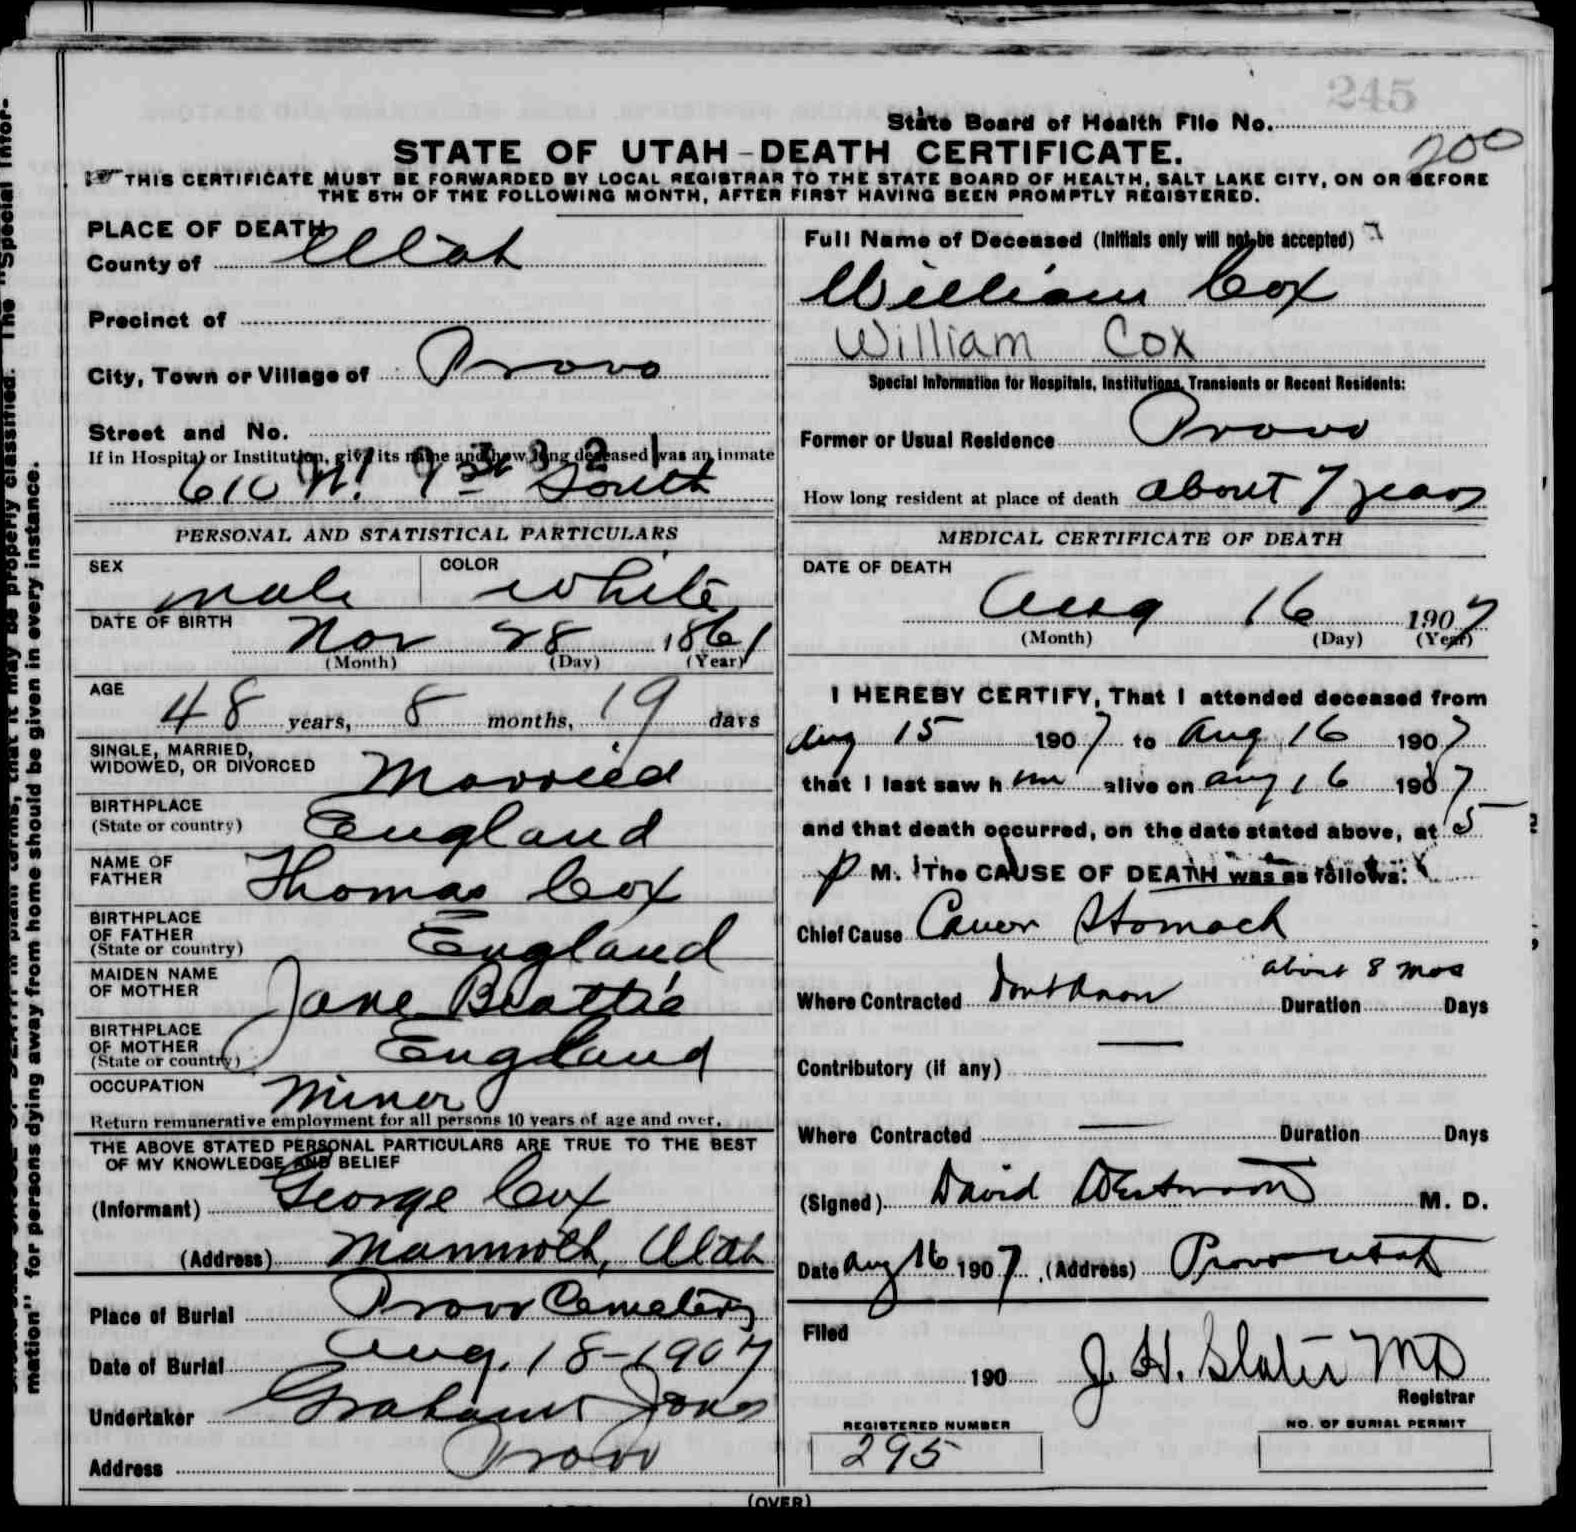 245
State Board of Health File No.
200
STATE OF UTAH-DEATH CERTIFICATE.
THIS CERTIFICATE MUST BE FORWARDED BY LOCAL REGISTRAR TO THE STATE BOARD OF HEALTH, SALT LAKE CITY, ON OR BEFORE
THE 5TH OF THE FOLLOWING MONTH, AFTER FIRST HAVING BEEN PROMPTLY REGISTERED.
PLACE OF DEATH
County of Utah
Precinct of
City, Town or Village of Provo
Street and No.
If in Hospital or Institution, give its name and how long deceased was an inmate
610 W. 1st South
PERSONAL AND STATISTICAL PARTICULARS
SEX male COLOR White
DATE OF BIRTH Nov 28 1861
(Month) (Day) (Year)
AGE 48 years, 8 months, 19 days
SINGLE, MARRIED,
WIDOWED, OR DIVORCED Married
BIRTHPLACE
(State or country) England
NAME OF
FATHER Thomas Cox
BIRTHPLACE
OF FATHER
(State or country) England
MAIDEN NAME
OF MOTHER Jane Beattie
BIRTHPLACE
OF MOTHER
(State or country) England
OCCUPATION Miner
Return remunerative employment for all persons 10 years of age and over.
THE ABOVE STATED PERSONAL PARTICULARS ARE TRUE TO THE BEST
OF MY KNOWLEDGE AND BELIEF
(Informant) George Cox
(Address) Mammoth, Utah
Place of Burial Provo Cemetery
Date of Burial Aug. 18-1907
Undertaker Graham Jones
Address Provo
Full Name of Deceased (Initials only will not be accepted)
William Cox
William Cox
Special Information for Hospitals, Institutions, Transients or Recent Residents:
Former or Usual Residence Provo
How long resident at place of death about 7 years
MEDICAL CERTIFICATE OF DEATH
DATE OF DEATH
Aug 16 1907
(Month) (Day) (Year)
I HEREBY CERTIFY, That I attended deceased from
Aug 15 1907 to Aug 16 1907
that I last saw him alive on Aug 16 1907
and that death occurred, on the date stated above, at 5
P M. The CAUSE OF DEATH was as follows:
Chief Cause Cancer Stomach
about 8 mos
Where Contracted Dont Know Duration Days
Contributory (if any)
Where Contracted Duration Days
(Signed) David Westwood M. D.
Date Aug 16 1907 (Address) Provo Utah
Filed
190 J. H. Slater MD
Registrar
REGISTERED NUMBER NO. OF BURIAL PERMIT
295
(OVER)
mation" for persons dying away from home should be given in every instance.